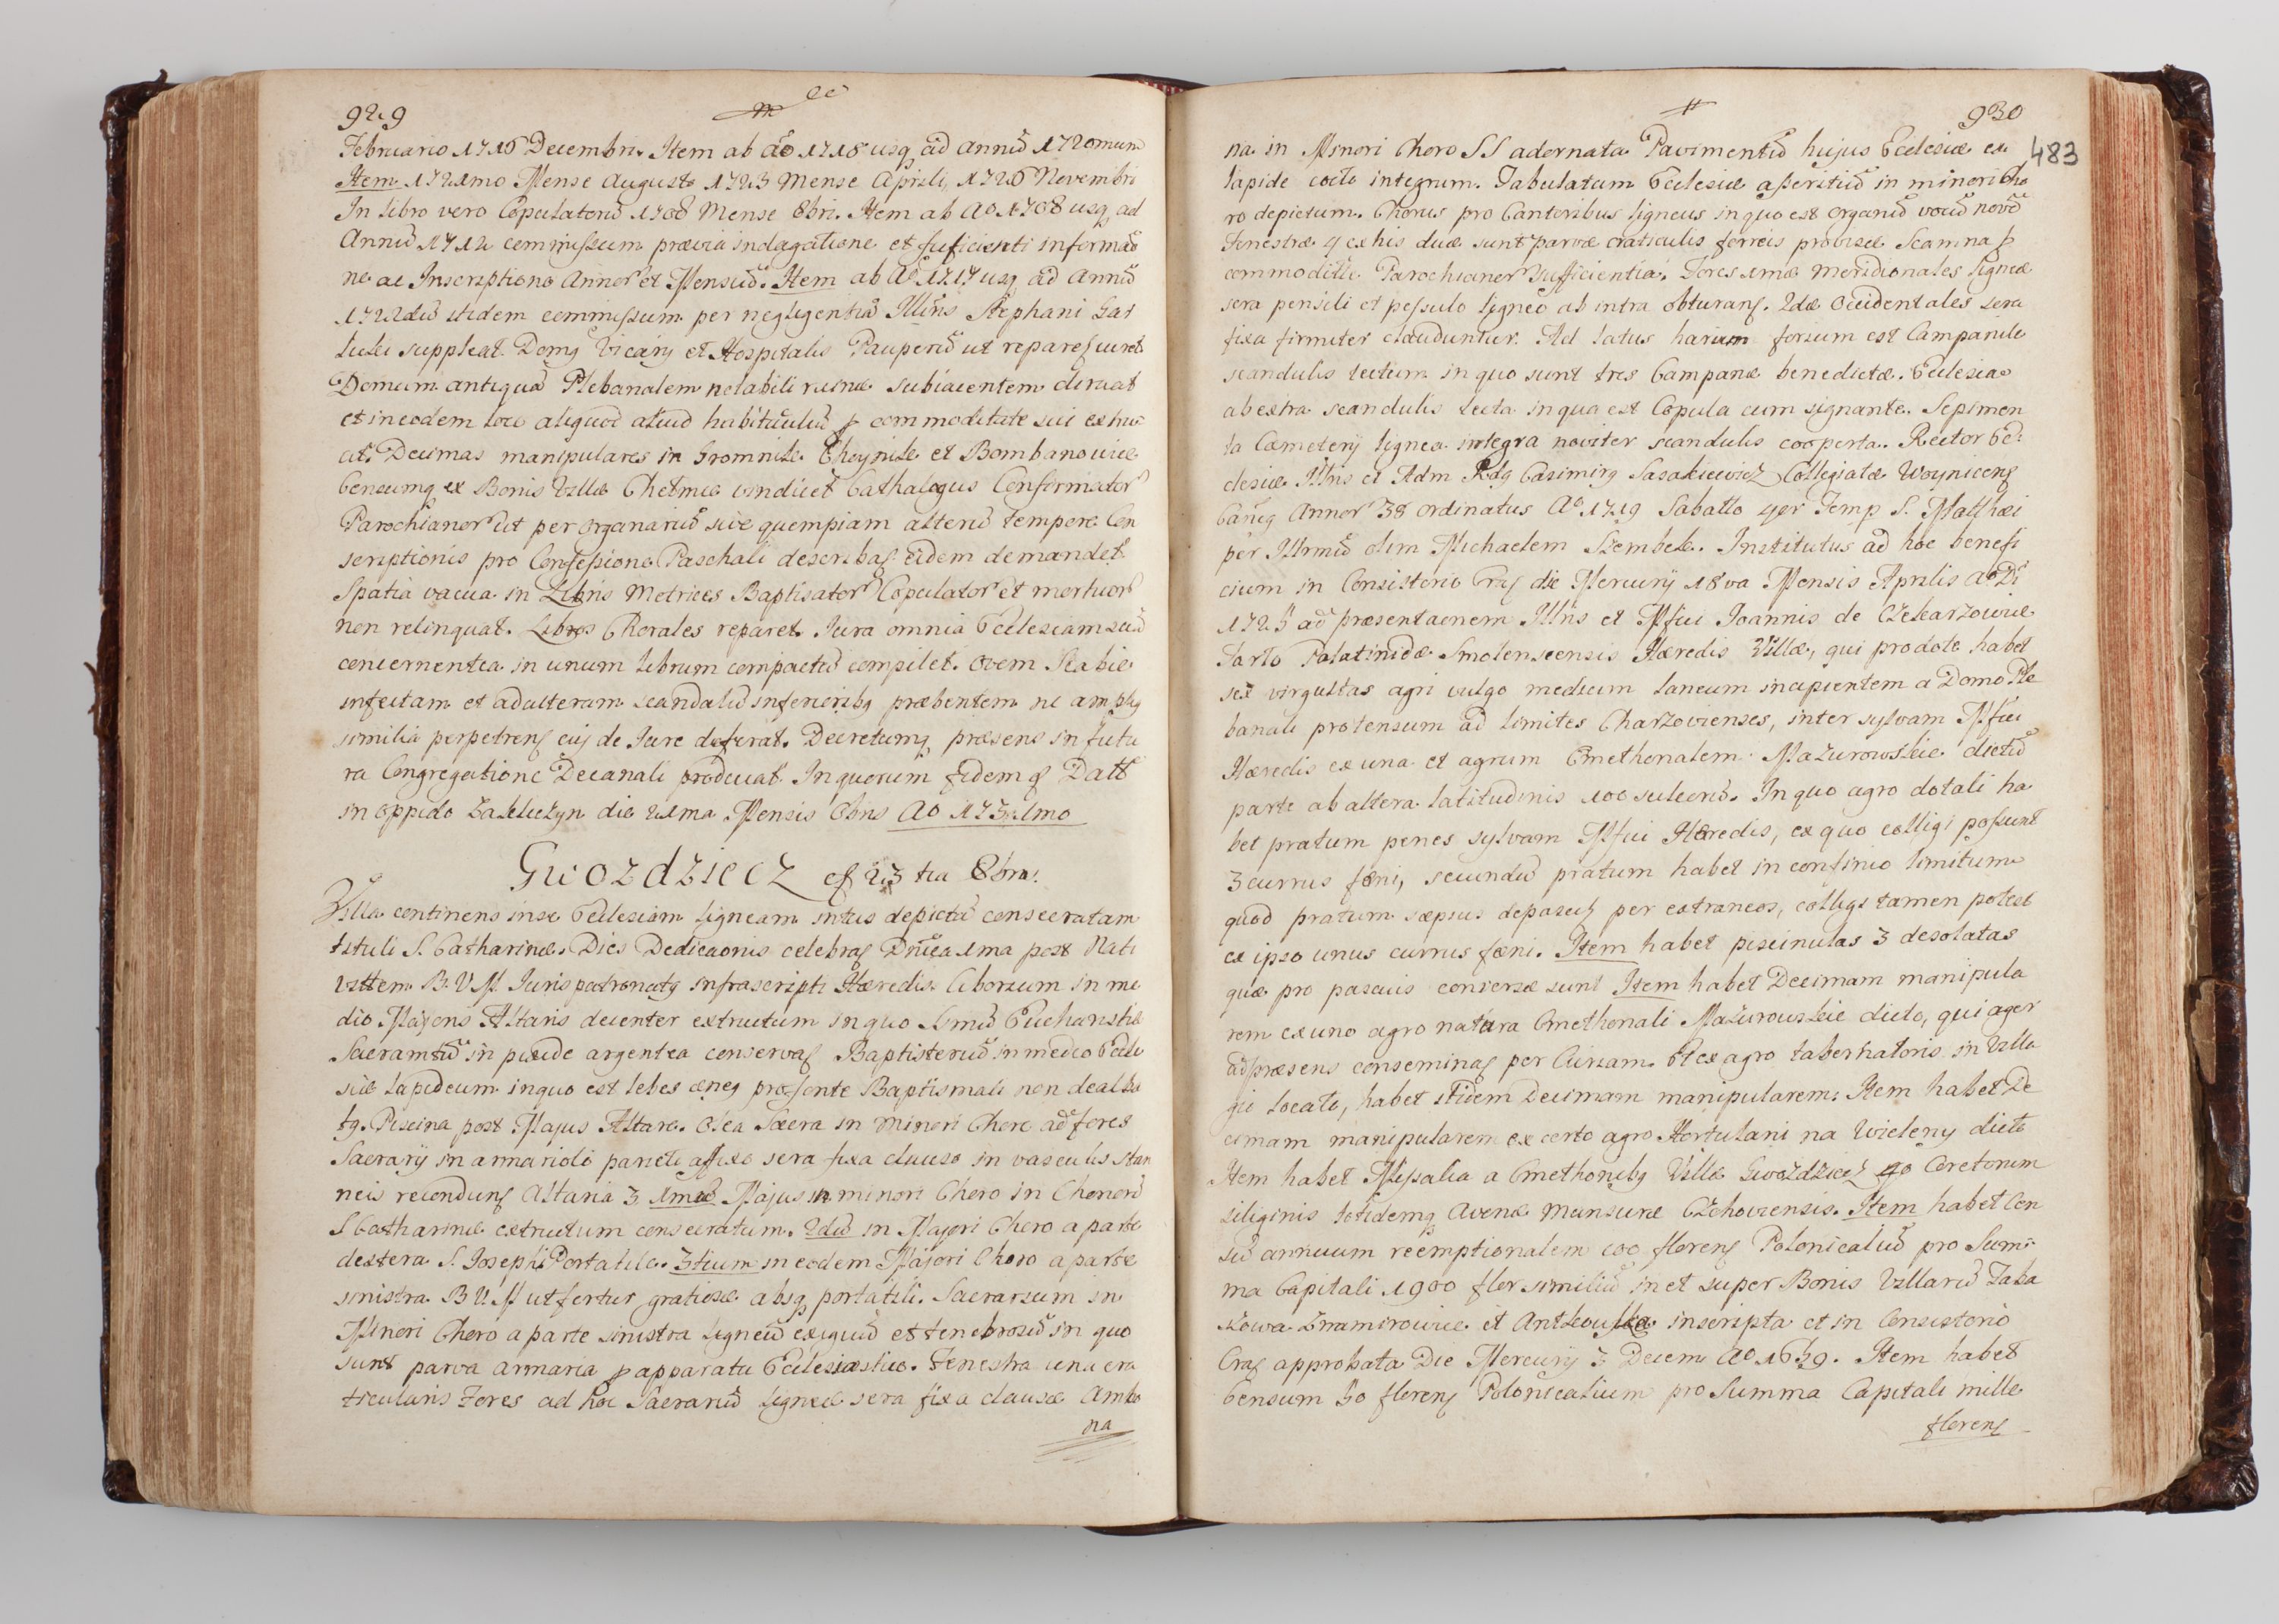 929
Februario 1716 Decembri. Item ab aō 1718 usq̨ ad annū 1720mum
Item 1721mo Mense Augusto 1723 Mense Aprili, 1726 Novembri
In libro vero Copulatorū 1706 Mense 8bri. Item ab Ao 1708 usq̨ ad
Annū 1712 commissum prævia indagatione et suficienti informāō
ne ac Inscriptione Annor et Mensiū. Item ab Aō 1717 usq̨ ad annū
1722dū itidem commissum per negligentiā Illīus Stephani
suppleat. Domq̨ Vicarij et Hospitalis Pauperū ut reparef curet.
Domum antiquā Plebanalem notabili ruinæ subiacentem diruat
et in eodem loco aliquod aliud habitaculū p commoditate sui extru-
at. Decimas manipulares in Gromnik. Choynik et Bombanowice
Censumq̨ ex Bonis Villæ Chełmie vindicet Cathalogus Confirmator
Parochianor ut per organariū sive quempiam alterū tempore Con
scriptionis pro Confessione Paschali describaf eidem demandet.
Spatia vacua in Libris Metrices Baptisator Copulator et mortuor
non relinquat. Libros Chorales reparet. Jura omnia Ecclesiam suā
concernentia in unum librum compactū compilet. Ovem Scabie
infectam et adulteram scandalū inferioribq̨ præbentem ne ampliq̨
similia perpetrenf eis de Jure deferat. Decretumq̨ præsens in futu
ra Congregatione Decanali producat. In quorum fidem q̨ Datt
in oppido Zakliczyn die 21ma Mensis 8bris Ao 1731mo
Gwozdziecz ef 23 tia 8bris.
Villa continens in se Ecclesiam ligneam intus depictā consecratam
tituli S. Catharinæ. Dies Dedicaonis celebraf Dnīca 1ma post Nati
vittem B. V M. Juris patronatq̨ infrascripti Hæredis. Ciborium in me
dio Majoris Altaris decenter extructum in quo Ssmū Eucharistiæ
Sacramtū in pixide argentea conservaf Baptisteriū in medio Eccle
siæ lapideum in quo est lebes æneq̨ pro fonte Baptismali non dealba
tq̨. Piscina post Majus Altare. Olea Sacra in Minori Choro ad fores
Sacrarij in armariolo parieti affixo sera fixa clauso in vasculis stan
neis recondunf Altaria 3 1mum Majus in minori Choro in Honorē
S Catharinæ extructum consecratum. 2dū in Majori Choro a parte
dextera S. Josephi Portatile. 3tium in eodem Majori Choro a parte
sinistra B V M ut fertur gratiosæ absq̨ portatili. Sacrarium in
Minori Choro a parte sinistra ligneū exiguū et tenebrosū in quo
sunt parva armaria p apparatu Ecclesiastico. Fenestra una cra
ticularis Fores ad hoc Sacrariū ligneæ sera fixa clausæ Ambo
na
930
483
na in Minori Choro SS adornata Pavimentū hujus Ecclesiæ ex
lapide cocto integrum. Tabulatum Ecclesiæ asseritiū in minori Cho
ro depictum. Chorus pro Cantoribus ligneus in quo est organū vocū novē
Fenestræ 4 ex his duæ sunt parvæ craticulis ferreis provisæ Scamna p
commoditte Parochianor sufficientia. Fores 1mæ meridionales ligneæ
sera pensili et pessulo ligneo ab intra obturanf. 2dæ occidentales sera
fixa firmiter clauduntur. Ad latus harum forium est Campanile
scandulis tectum in quo sunt tres Campanæ benedictæ. Ecclesia
ab extra scandulis tecta in qua est Copula cum signante. Sepimen
ta Cæmeterij lignea integra noviter scandulis cooperta. Rector Ec-
clesiæ Illris et Adm Rdq̨ Casimirq̨ Sasakiewicz Collegiatæ Woynicenf
Canīcq̨ Annor 38 ordinatus Ao 1719 Sabatto 4or Temp S. Matthæi
per Illrmū olim Michaelem Szembek. Institutus ad hoc benefi
cium in Consistorio Craf die Mercurij 18va Mensis Aprilis Ao Di
1725 ad præsentaōnem Illris et Mfici Joannis de Czekarzowice
Tarło Palatinidæ Smolenscensis Hæredis Villæ, qui pro dote habet
sex virgultas agri vulgo medium laneum incipientem a Domo Ple
banali protensum ad limites Charzovienses, inter sylvam Mfici
Hæredis ex una et agrum Cmethonalem Mazurowskie dictū
parte ab altera latitudinis 100 sulcorū. In quo agro dotali ha
bet pratum penes sylvam Mfici Hæredis, ex quo colligi possunt
3 currus fæni, secundū pratum habet in confinio limitum
quod pratum sæpius depascif per extraneos, colligi tamen potest
ex ipso unus currus fæni. Item habet piscinulas 3 desolatas
quæ pro pascuis conversæ sunt Item habet Decimam manipula
rem ex uno agro natura Cmethonali Mazurouskie dicto, qui ager
ad præsens conseminaf per Curiam. Et ex agro tabernatoris in Villa
locato, habet itidem Decimam manipularem. Item habet De
cimam manipularem ex certo agro Hortulani na Wieleny dicto
Item habet Missalia a Cmethonibq̨ Villæ Gwozdziecz 40 Coretorum
siliginis totidemq̨ Avenæ mensuræ Czchoviensis. Item habet Cen
sū annuum reemptionalem 100 florenf Polonicaliū pro Sum-
ma Capitali 1900 flor similiū in et super Bonis Villarū Faliszowa
inscripta et in Consistorio
Craf approbata Die Mercurij 3 Decem Ao 1639. Item habet
Censum 50 florenf Polonicalium pro Summa Capitali mille
florenf